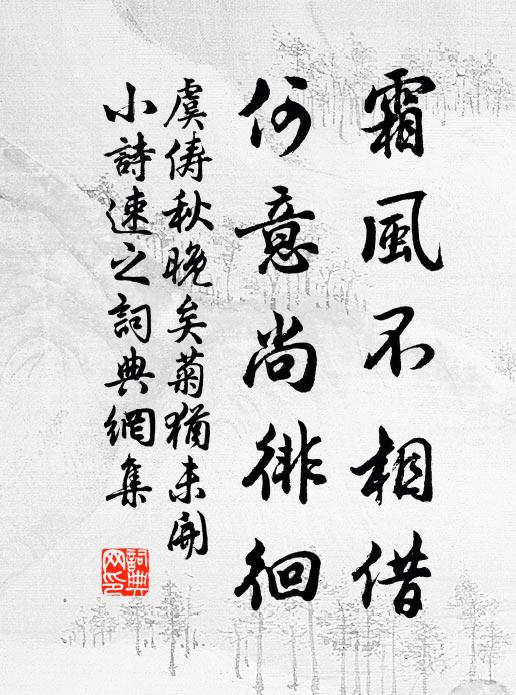 霜風不相借
何意尚徘徊
虞儔秋晚矣菊猶未開
小詩速之詞典網集
詞典網印